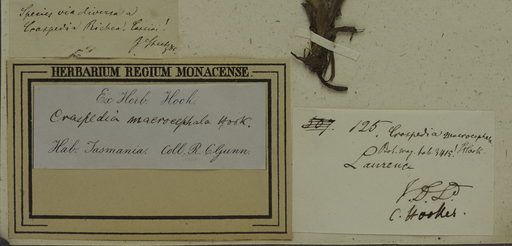 Species vix diversa a
Craspedia Richea. Cassin.!
HERBARIUM REGIUM MONACENSE.
Ex Herb. Hook.
Craspedia macrocephala Hook.
Hab. Tasmania. Coll. R. C. Gunn.
507. 125. Craspedia macrocephala
Bot. mag. tab. 3415! Hook.
Laurence
V.D.Ld
C. Hooker.